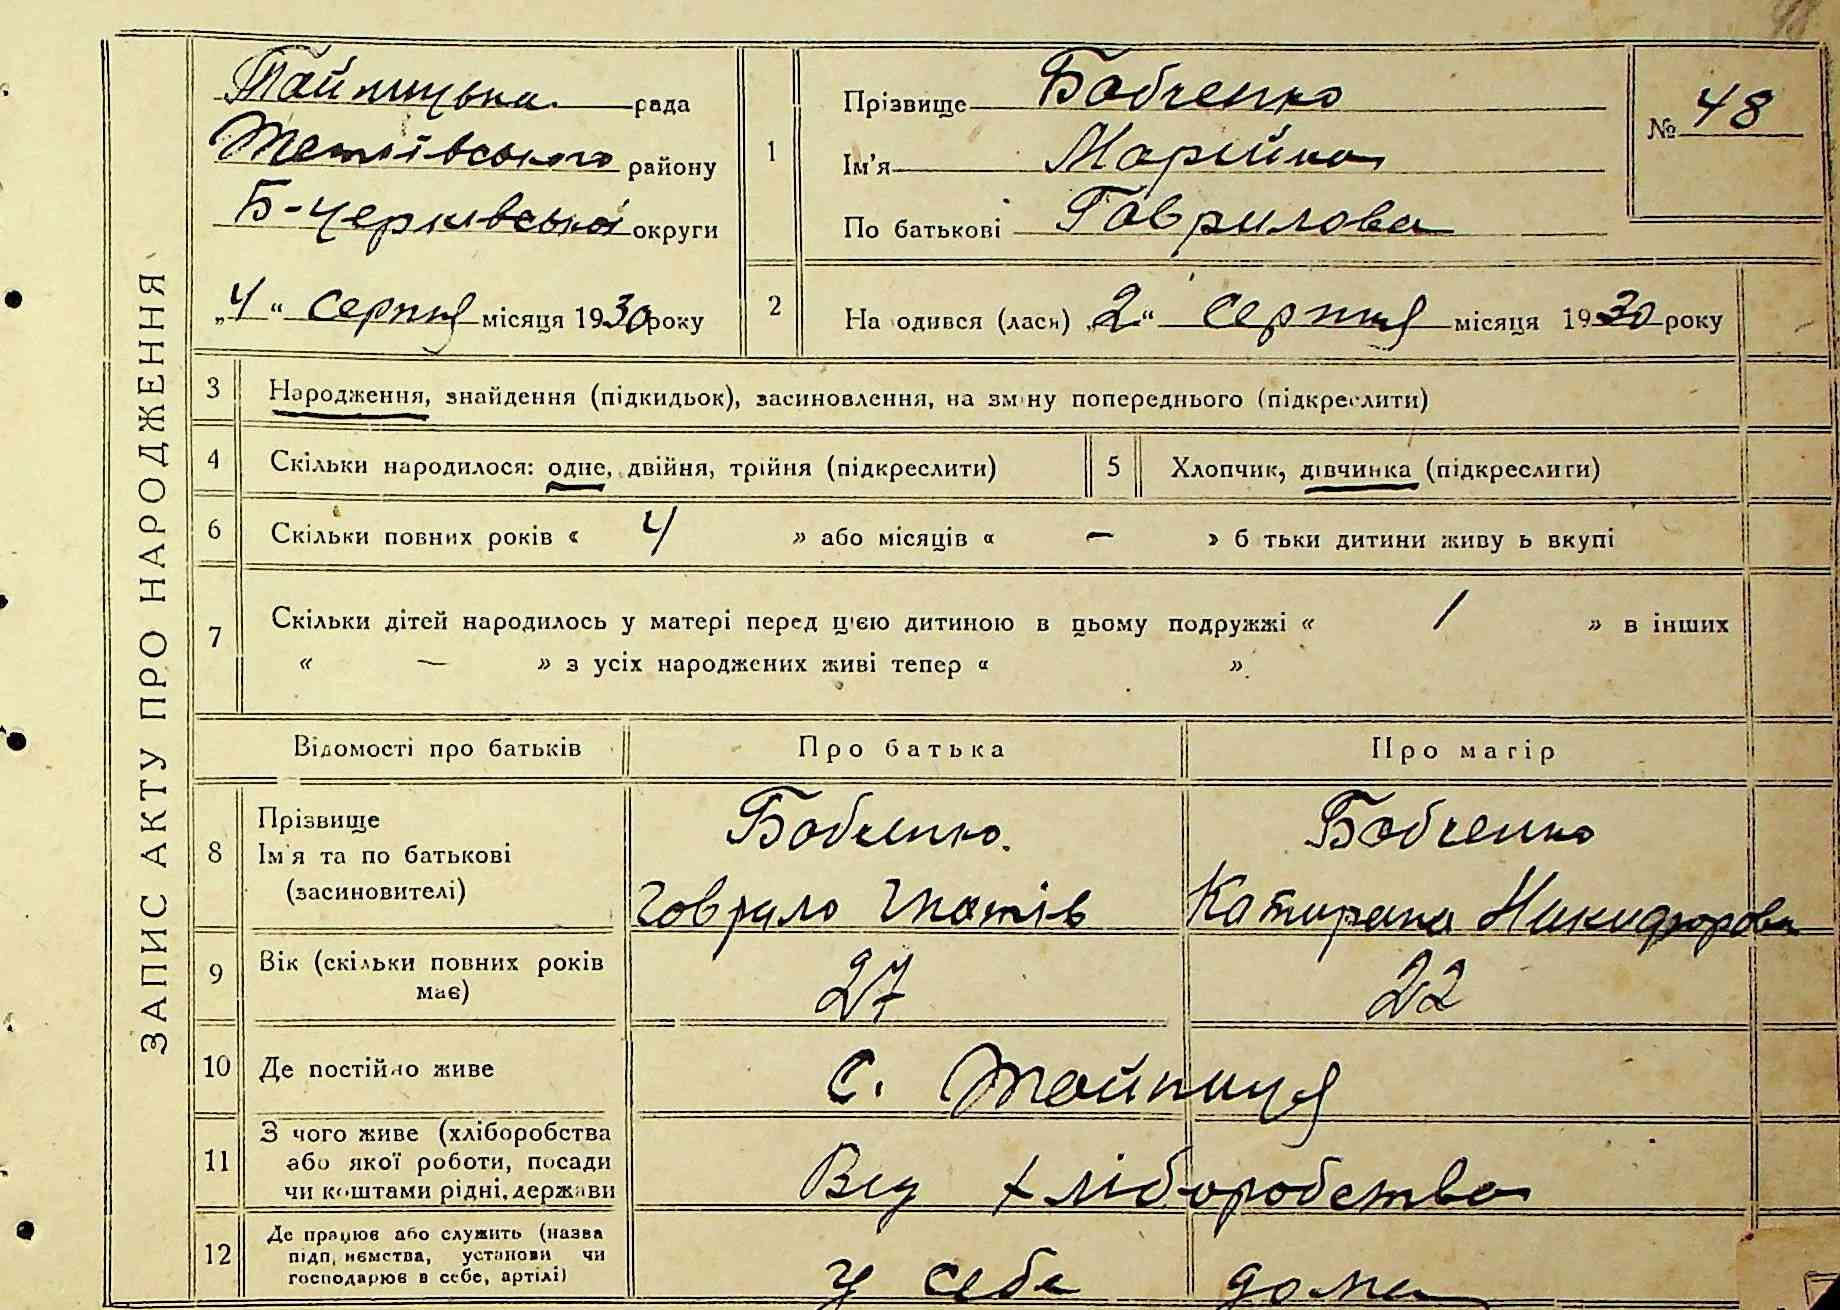 ЗАПИС АКТУ ПРО НАРОДЖЕННЯ
Тайницька рада
Тетіївського району
Б-Церківської округи
„4“ серпня місяця 1930 року
1
Прізвище Бабченко
Ім'я Марійка
По батькові Гаврилова
№ 48
2
Народився (лася) „2“ серпня місяця 1930 року
3 Народження, знайдення (підкидьок), засиновлення, на зміну попереднього (підкреслити)
4 Скільки народилося: одне, двійня, трійня (підкреслити)
5 Хлопчик, дівчинка (підкреслити)
6 Скільки повних років « 4 » або місяців « — » батьки дитини живуть вкупі
7 Скільки дітей народилось у матері перед ц'єю дитиною в цьому подружжі « 1 » в інших
« — » з усіх народжених живі тепер « ».
Відомості про батьків Про батька Про матір
8 Прізвище
Ім'я та по батькові
(засиновителі)
Бабченко.
Гаврило Гнатів
Бабченко
Катирина Никифорова
9 Вік (скільки повних років
має)
27
22
10 Де постійно живе
с. Тайниця
11 З чого живе (хліборобства
або якої роботи, посади
чи коштами рідні, держави
Від хліборобства
12 Де працює або служить (назва
підприємства, установи чи
господарює в себе, артілі)
у себе дома